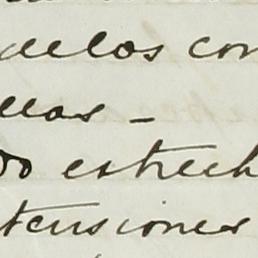 delos con
llas -
do estrech
tensiones